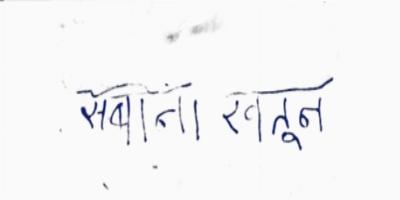 सबाना खातून